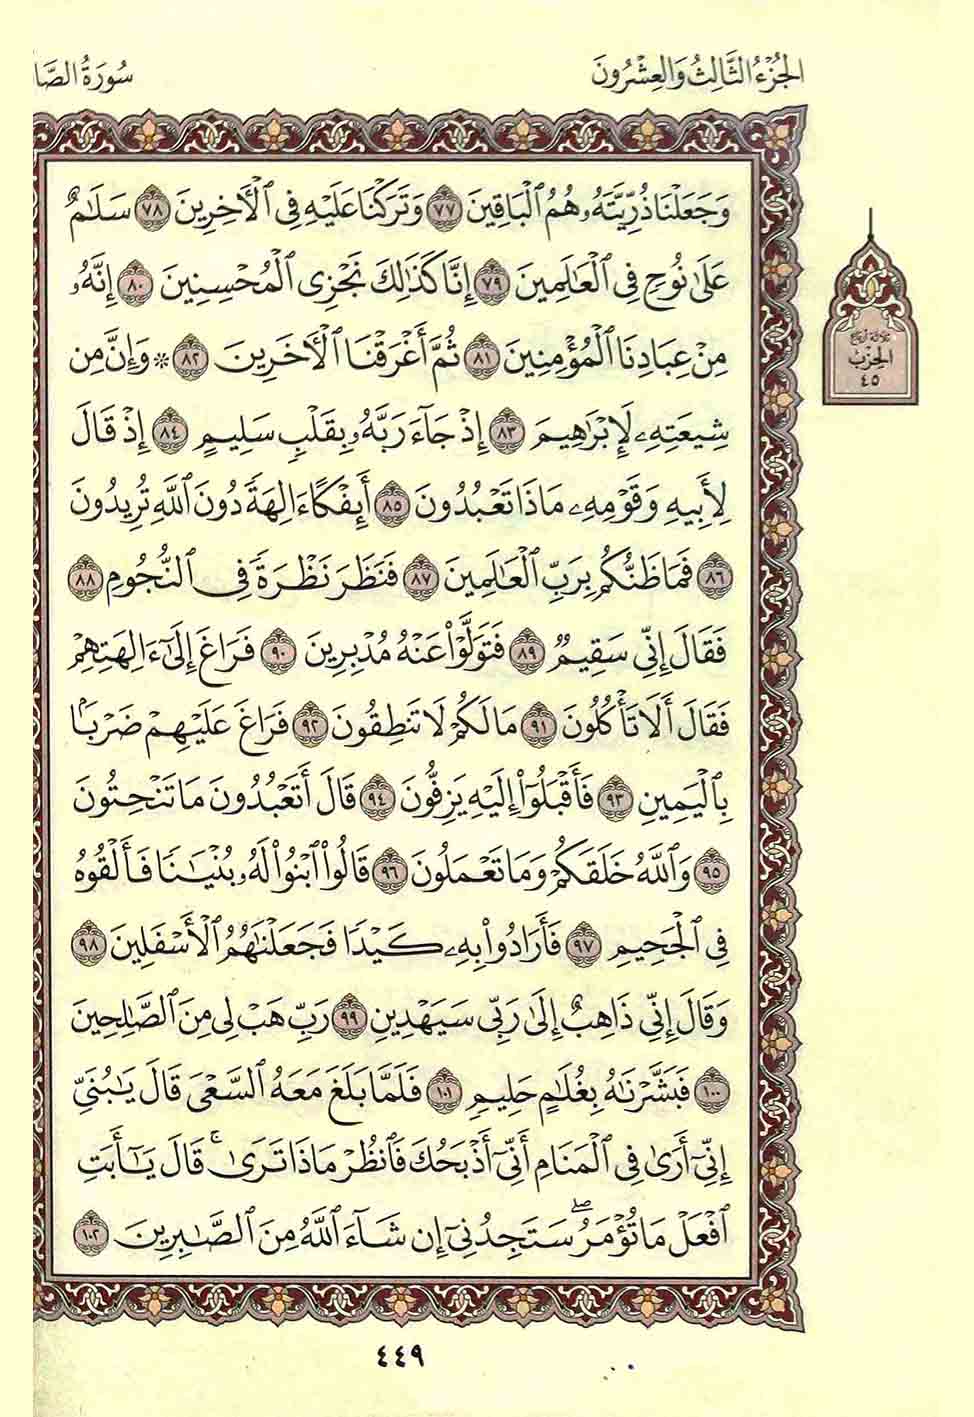 الجُزْءُ الثَّالِثُ وَالعِشْرُونَ
سُورَةُ الصَّا
وَجَعَلْنَا ذُرِّيَّتَهُۥ هُمُ ٱلْبَاقِينَ ٧٧ وَتَرَكْنَا عَلَيْهِ فِى ٱلْـَٔاخِرِينَ ٧٨ سَلَـٰمٌ
عَلَىٰ نُوحٍ فِى ٱلْعَـٰلَمِينَ ٧٩ إِنَّا كَذَٰلِكَ نَجْزِى ٱلْمُحْسِنِينَ ٨٠ إِنَّهُۥ
مِنْ عِبَادِنَا ٱلْمُؤْمِنِينَ ٨١ ثُمَّ أَغْرَقْنَا ٱلْـَٔاخَرِينَ ٨٢ ۞ وَإِنَّ مِن
ثلاثة أرباع
الحِزْب
٤٥
شِيعَتِهِۦ لَإِبْرَٰهِيمَ ٨٣ إِذْ جَآءَ رَبَّهُۥ بِقَلْبٍ سَلِيمٍ ٨٤ إِذْ قَالَ
لِأَبِيهِ وَقَوْمِهِۦ مَاذَا تَعْبُدُونَ ٨٥ أَئِفْكًا ءَالِهَةً دُونَ ٱللَّهِ تُرِيدُونَ
٨٦ فَمَا ظَنُّكُم بِرَبِّ ٱلْعَـٰلَمِينَ ٨٧ فَنَظَرَ نَظْرَةً فِى ٱلنُّجُومِ ٨٨
فَقَالَ إِنِّى سَقِيمٌ ٨٩ فَتَوَلَّوْا۟ عَنْهُ مُدْبِرِينَ ٩٠ فَرَاغَ إِلَىٰٓ ءَالِهَتِهِمْ
فَقَالَ أَلَا تَأْكُلُونَ ٩١ مَا لَكُمْ لَا تَنطِقُونَ ٩٢ فَرَاغَ عَلَيْهِمْ ضَرْبًۢا
بِٱلْيَمِينِ ٩٣ فَأَقْبَلُوٓا۟ إِلَيْهِ يَزِفُّونَ ٩٤ قَالَ أَتَعْبُدُونَ مَا تَنْحِتُونَ
٩٥ وَٱللَّهُ خَلَقَكُمْ وَمَا تَعْمَلُونَ ٩٦ قَالُوا۟ ٱبْنُوا۟ لَهُۥ بُنْيَـٰنًا فَأَلْقُوهُ
فِى ٱلْجَحِيمِ ٩٧ فَأَرَادُوا۟ بِهِۦ كَيْدًا فَجَعَلْنَـٰهُمُ ٱلْأَسْفَلِينَ ٩٨
وَقَالَ إِنِّى ذَاهِبٌ إِلَىٰ رَبِّى سَيَهْدِينِ ٩٩ رَبِّ هَبْ لِى مِنَ ٱلصَّـٰلِحِينَ
١٠٠ فَبَشَّرْنَـٰهُ بِغُلَـٰمٍ حَلِيمٍ ١٠١ فَلَمَّا بَلَغَ مَعَهُ ٱلسَّعْىَ قَالَ يَـٰبُنَىَّ
إِنِّىٓ أَرَىٰ فِى ٱلْمَنَامِ أَنِّىٓ أَذْبَحُكَ فَٱنظُرْ مَاذَا تَرَىٰ ۚ قَالَ يَـٰٓأَبَتِ
ٱفْعَلْ مَا تُؤْمَرُ ۖ سَتَجِدُنِىٓ إِن شَآءَ ٱللَّهُ مِنَ ٱلصَّـٰبِرِينَ ١٠٢
٤٤٩